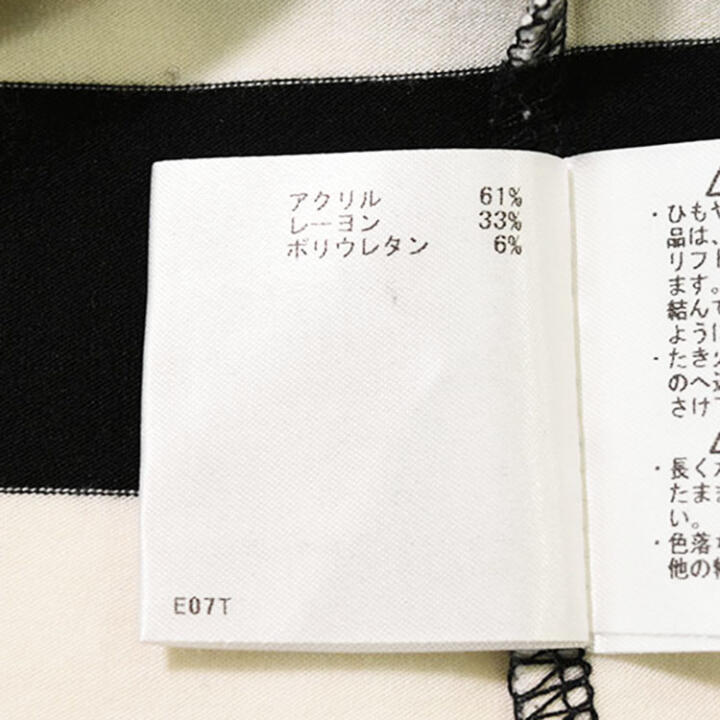 アクリル 61%
レーヨン 33%
ポリウレタン 6%
E07T
・ひもや
品は、
リフト
ます。
結んで
ように
・たき火
のへ近
さけて
・長く水
たまま
い。
・色落ち
他の物